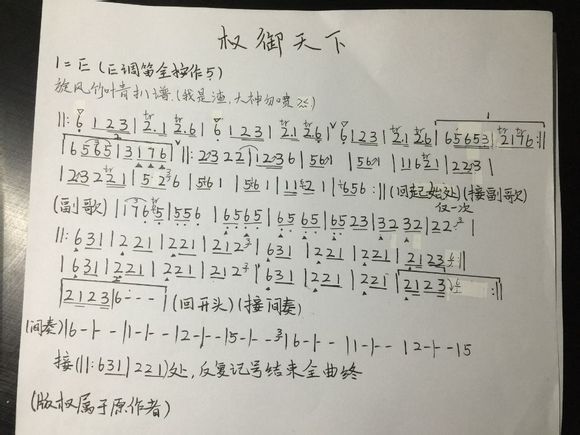 权御天下
1=E (E调笛全按作5)
旋风竹叶青扒谱.(我是渣,大神勿喷)
||: 6 123 | 2.1 2.6 | 6 123 | 2.1 2.6 | 6 123 | 2.1 2.6 | 65653 | 2176 :||
6565 | 3176 ||: 2322 | 1236 | 561 | 561 | 1161 | 223 |
123221 | 5 236 | 561 | 561 | 1121 | 656 :|| (回起始处)(接副歌)
仅一次
(副歌) | 17655 | 556 | 6565 | 6565 | 6523 | 3232 | 22 |
||: 631 | 221 | 221 | 212 | 631 | 221 | 221 | 2123 :||
| 631 | 221 | 221 | 212 | 631 | 221 | 221 | 2123 :||
| 2123 | 6 - - - | (回开头)(接间奏)
(间奏) | 6 - | - - | 1 - | - - | 2 - | - | 5 - | - - | 6 - | - - | 1 - | - - | 2 - | - | 5
接(||: 631 | 221)处,反复记号结束全曲终
(版权属于原作者)